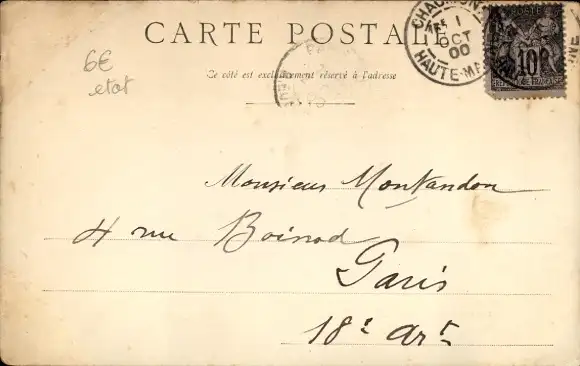 CARTE POSTALE
Ce côté est exclusivement réservé à l'adresse
6€
etat
CHAUMON
1
OCT
00
HAUTE-MA
POSTE
10
Monsieur Montandon
4 rue Boinod
Paris
18e Art